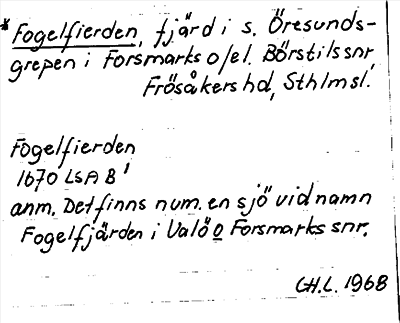 * Fogelfierden, fjärd i s. Öresunds-
grepen i Forsmarks o/el. Börstils snr,
Frösåkers hd, Sthlmsl.
Fogelfierden
1670 LSA B¹
anm. Det finns num. en sjö vid namn
Fogelfjärden i Valö o Forsmarks snr.
CH.L. 1968